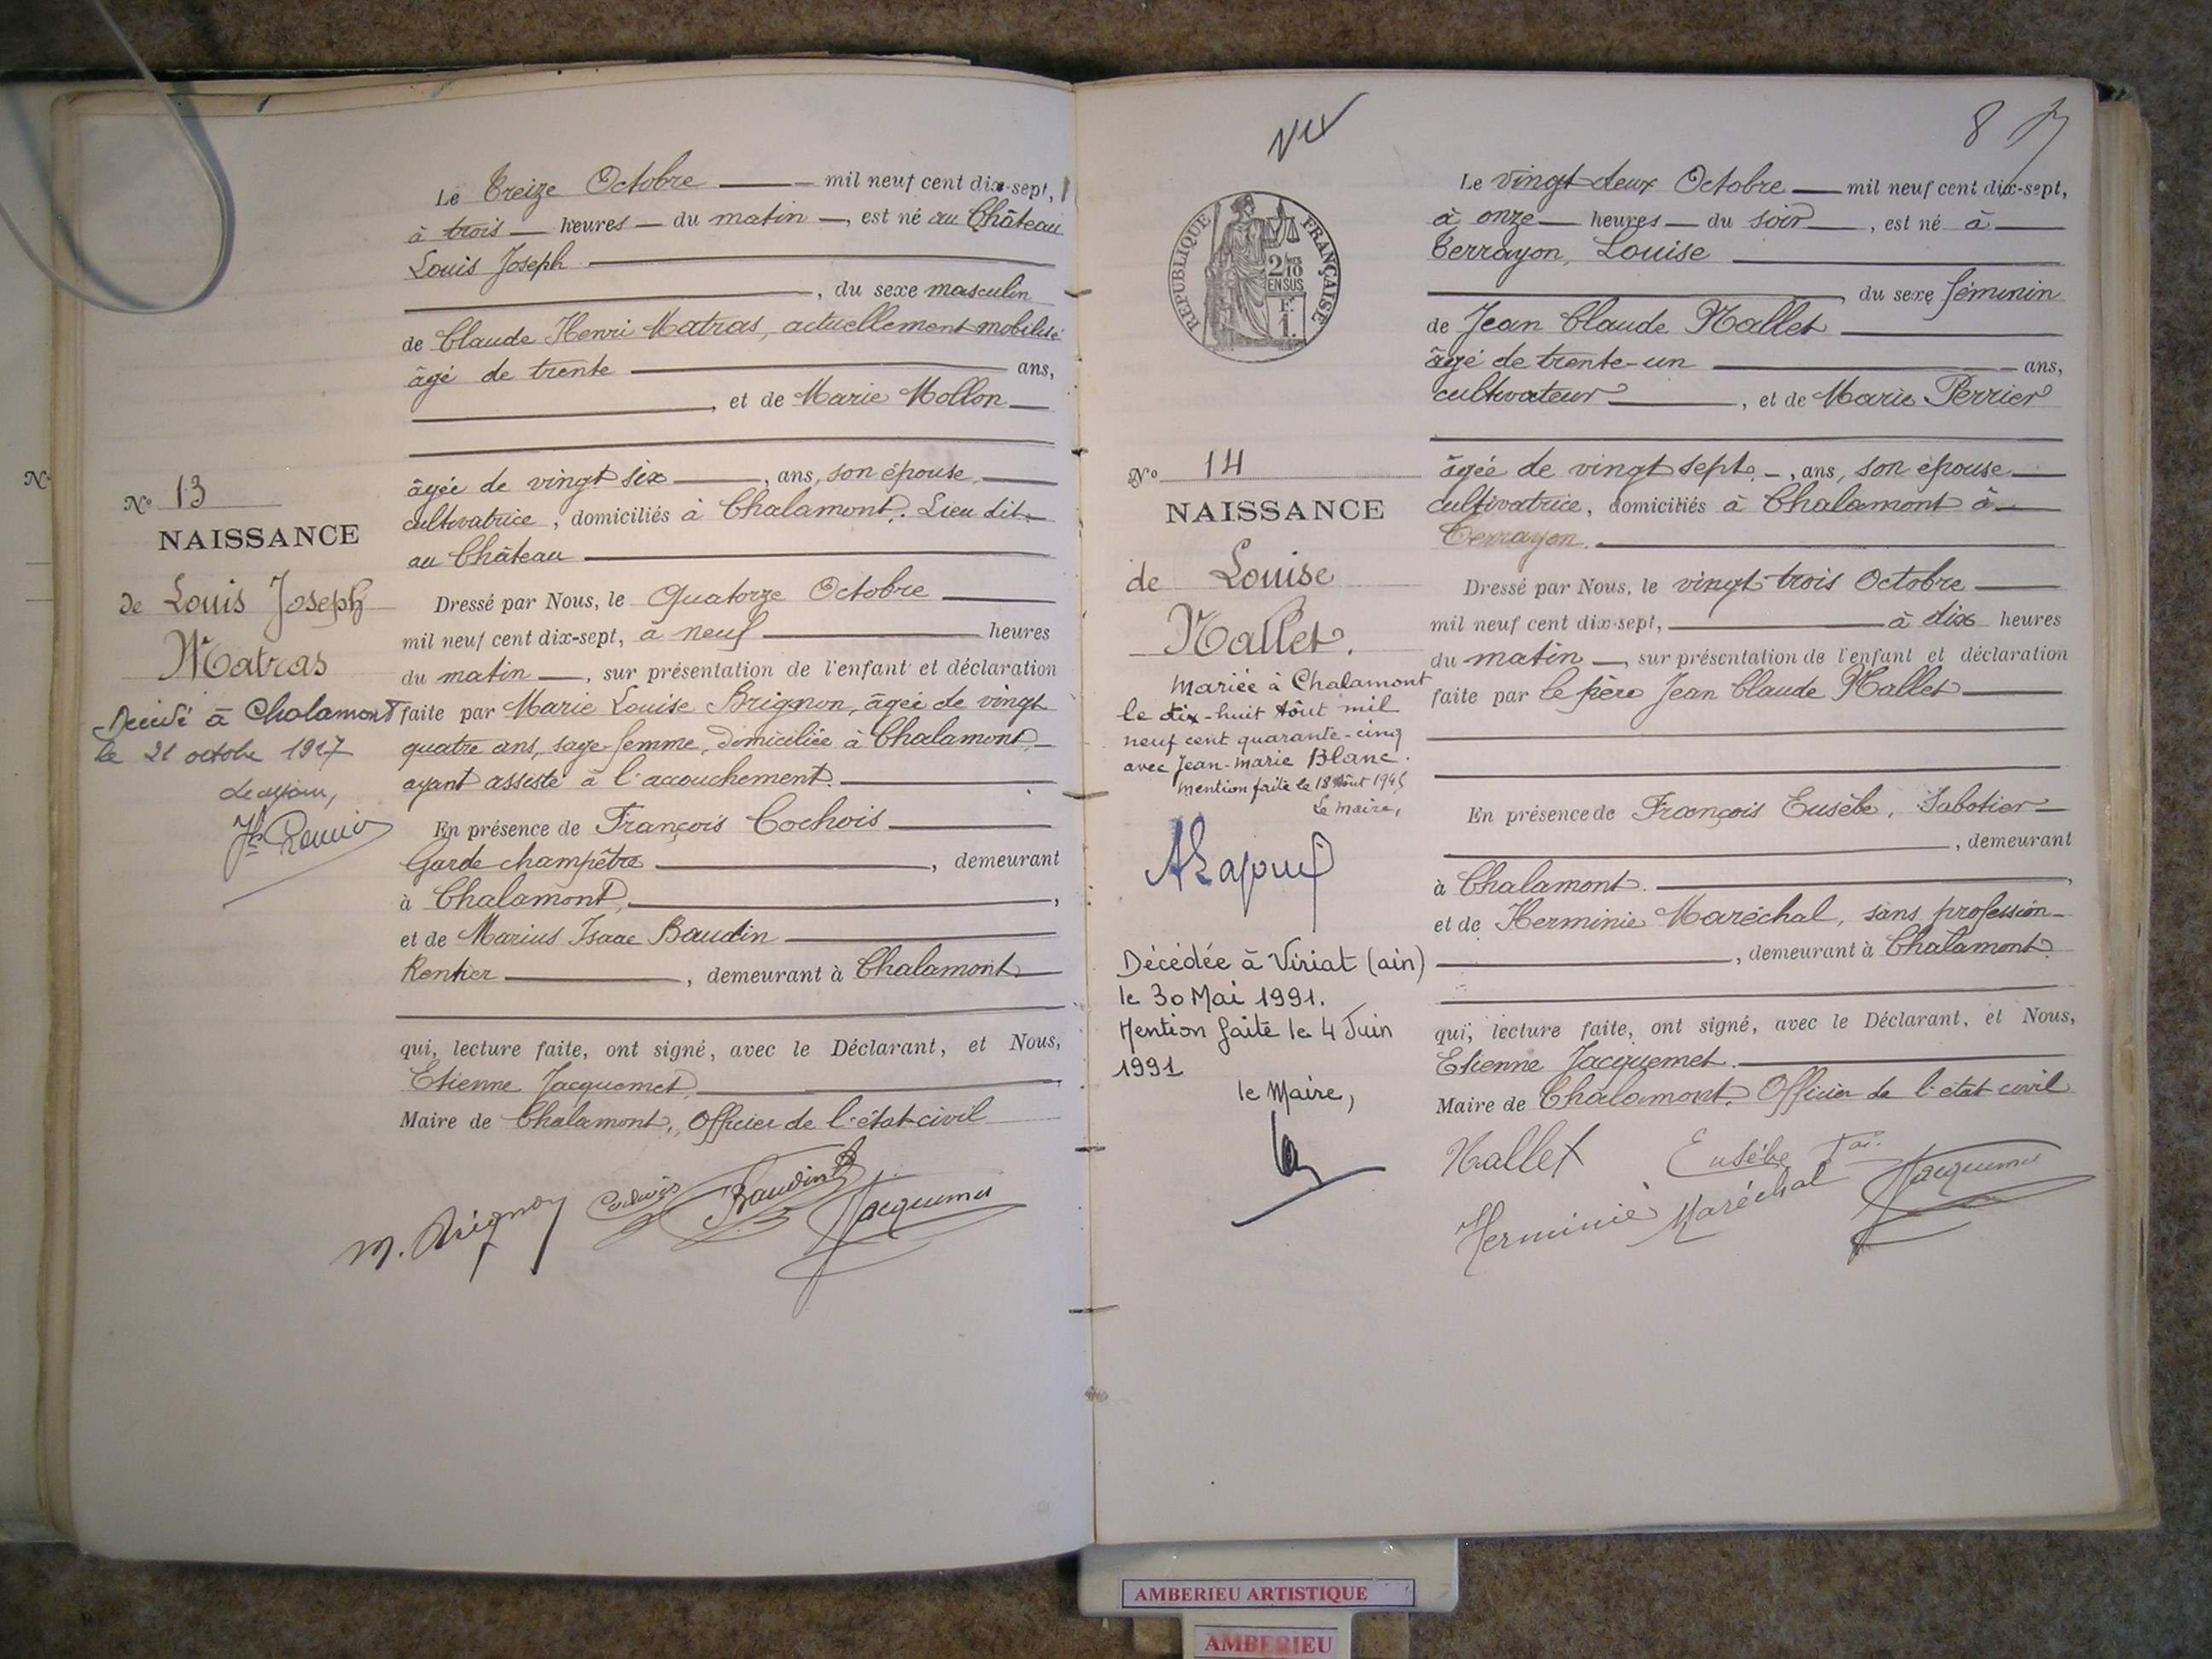 N°
Le Treize Octobre mil neuf cent dix-sept,
à trois heures du matin, est né au Château
Louis Joseph
, du sexe masculin
de Claude Henri Matras, actuellement mobilisé
âgé de trente ans,
, et de Marie Mollon
âgée de vingt six, ans, son épouse,
cultivatrice, domiciliés à Chalamont. Lieu dit:
au Château
N° 13
NAISSANCE
de Louis Joseph
Matras
Décédé à Chalamont
le 21 octobre 1917
Dressé par Nous, le Quatorze Octobre
mil neuf cent dix-sept, à neuf heures
du matin, sur présentation de l'enfant et déclaration
faite par Marie Louise Brignon, âgée de vingt
quatre ans, sage-femme, domiciliée à Chalamont,
ayant assisté à l'accouchement.
En présence de François Cochois
Garde champêtre, demeurant
à Chalamont,
et de Marius Isaac Baudin
Rentier, demeurant à Chalamont
qui, lecture faite, ont signé, avec le Déclarant, et Nous,
Etienne Jacquemet,
Maire de Chalamont, Officier de l'état-civil
M. Brignon Cochois Baudin Jacquemet
8
REPUBLIQUE FRANÇAISE
2/10
EN SUS
F.
1.
Le vingt-deux Octobre mil neuf cent dix-sept,
à onze heures du soir, est né à
Terrayon, Louise
, du sexe féminin
de Jean Claude Mallet
âgé de trente-un ans,
cultivateur, et de Marie Perrier
âgée de vingt sept, ans, son épouse
cultivatrice, domiciliés à Chalamont à
Terrayon.
N° 14
NAISSANCE
de Louise
Mallet.
Mariée à Chalamont
le dix-huit Août mil
neuf cent quarante-cinq
avec Jean-Marie Blanc.
Mention faite le 18 Août 1945
Le Maire,
Décédée à Viriat (ain)
le 30 Mai 1991.
Mention faite le 4 Juin
1991
le Maire,
Dressé par Nous, le vingt-trois Octobre
mil neuf cent dix-sept, à dix heures
du matin, sur présentation de l'enfant et déclaration
faite par le père Jean Claude Mallet
En présence de François Eusèbe, Sabotier
, demeurant
à Chalamont.,
et de Herminie Maréchal, sans profession
, demeurant à Chalamont.
qui, lecture faite, ont signé, avec le Déclarant, et Nous,
Etienne Jacquemet.
Maire de Chalamont, Officier de l'état civil
Mallet Eusèbe
Herminie Maréchal Jacquemet
AMBERIEU ARTISTIQUE
AMBERIEU